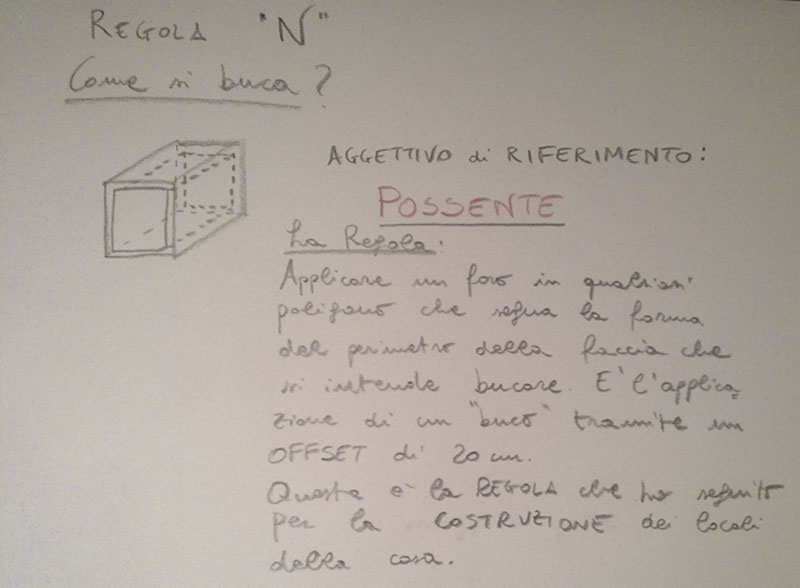 REGOLA "N"
Come si buca?
AGGETTIVO di RIFERIMENTO:
POSSENTE
La Regola:
Applicare un foro in qualsiasi
poligono che segua la forma
del perimetro della faccia che
si intende bucare. E' l'applica=
zione di un "buco" tramite un
OFFSET di 20 cm.
Questa è la REGOLA che ho seguito
per la COSTRUZIONE dei locali
della casa.